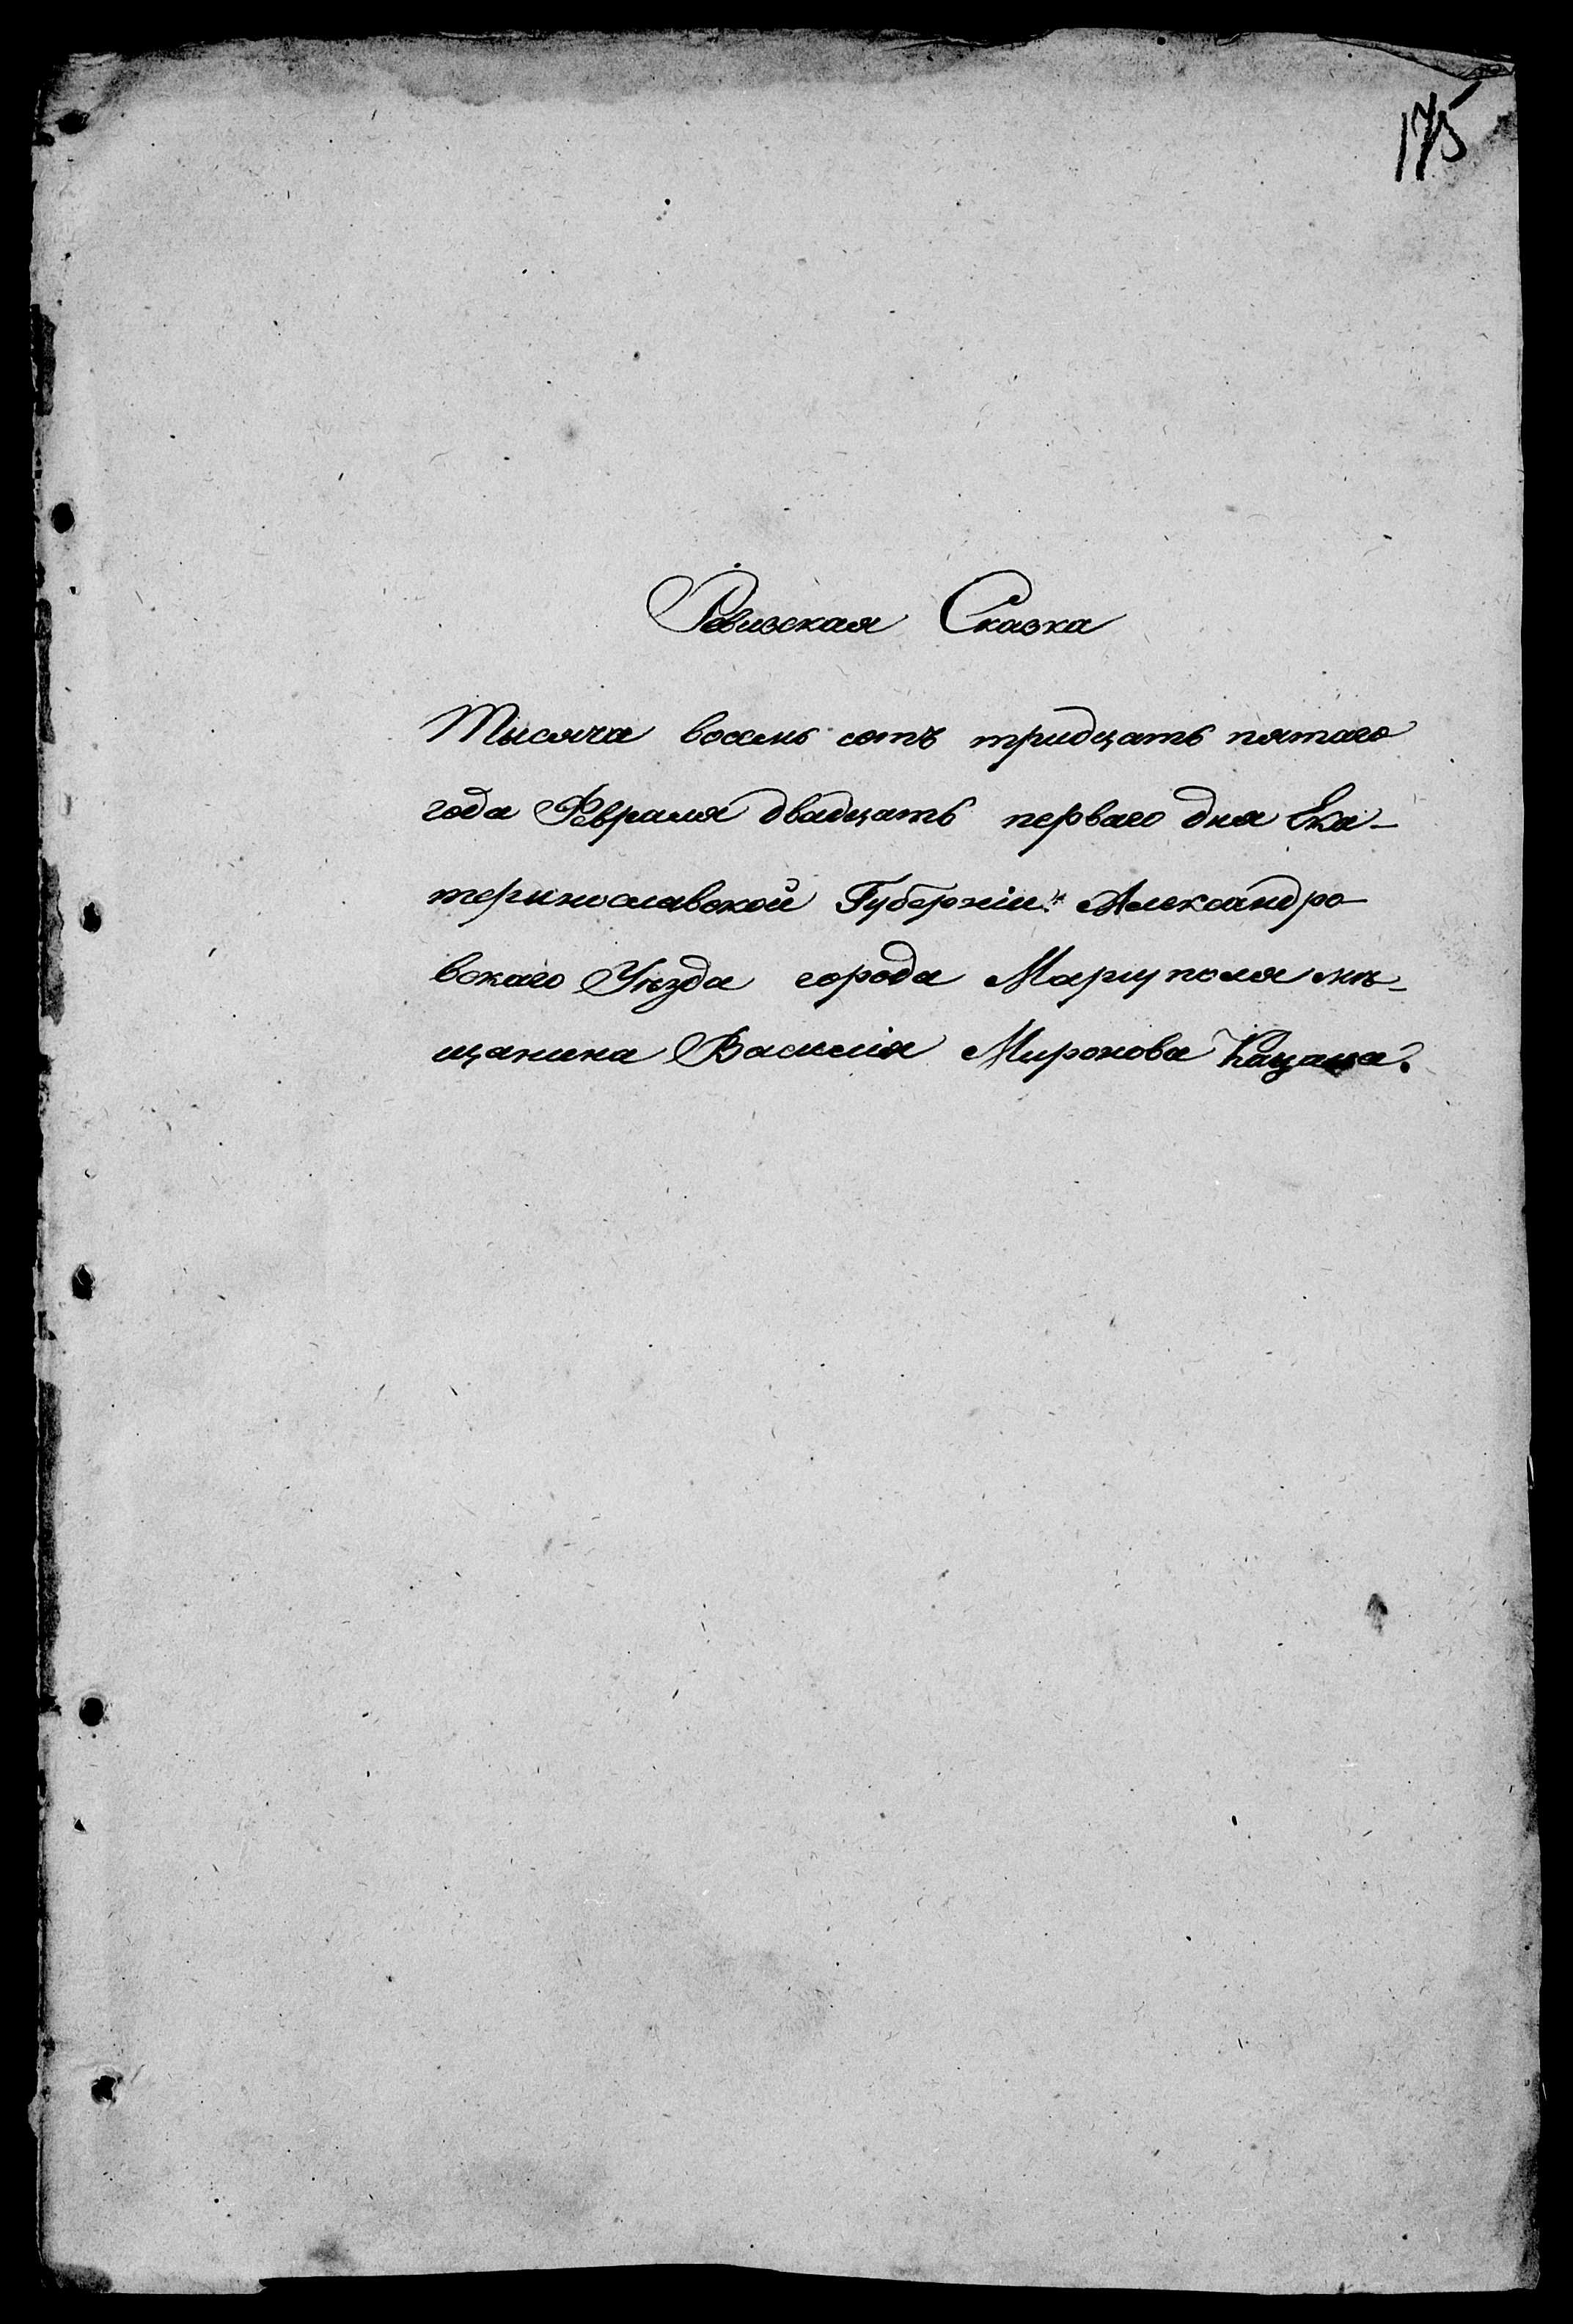 175
Ревизская Сказка
Тысяча восемь сотъ тридцать пятаго
года Февраля двадцать перваго дня Ека-
теринославской Губерніи Александро-
вскаго Уѣзда города Мариуполя мѣ-
щанина Василія Миронова Кацана.